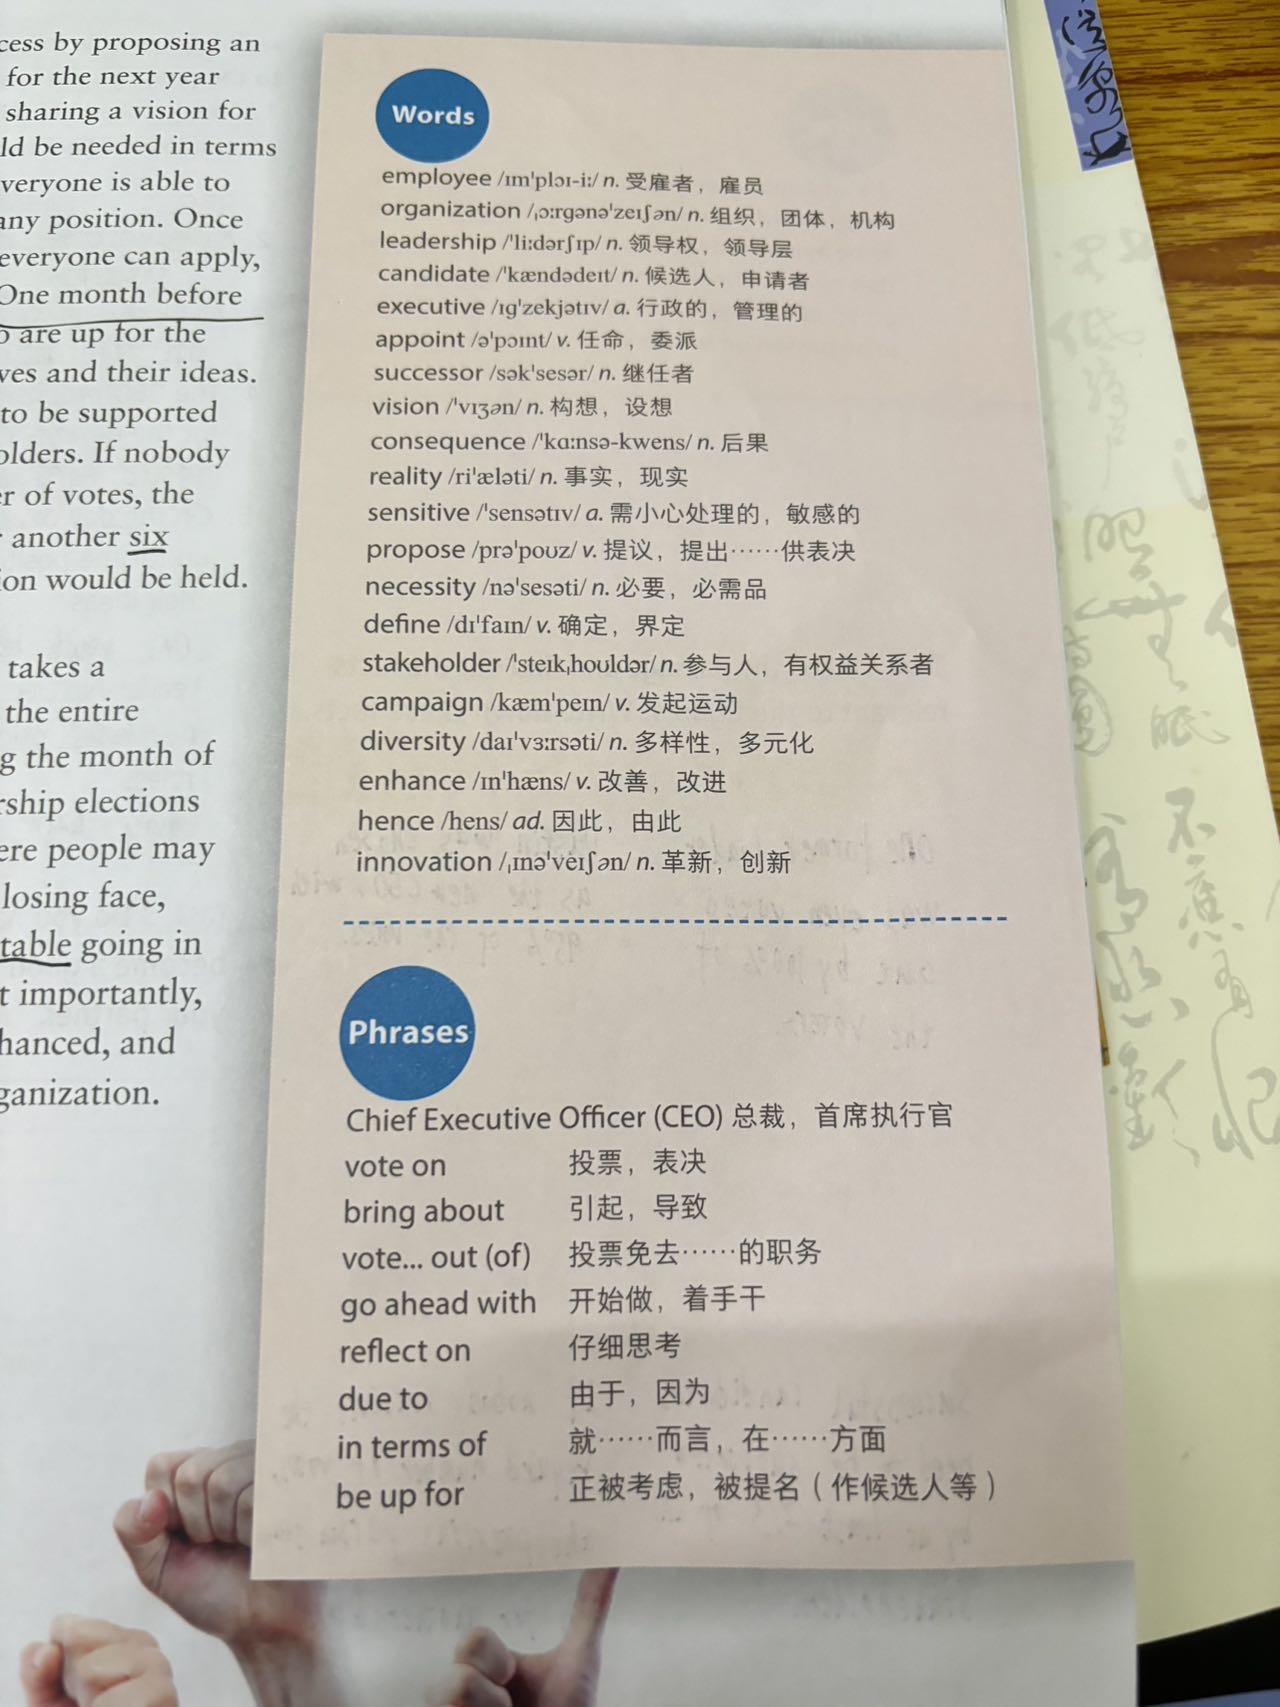 cess by proposing an
for the next year
sharing a vision for
ld be needed in terms
veryone is able to
any position. Once
everyone can apply,
One month before
o are up for the
ves and their ideas.
to be supported
olders. If nobody
er of votes, the
r another six
ion would be held.
takes a
the entire
g the month of
rship elections
ere people may
losing face,
table going in
t importantly,
hanced, and
ganization.
Words
employee /ɪmˈplɔɪ-iː/ n. 受雇者，雇员
organization /ˌɔːrgənəˈzeɪʃən/ n. 组织，团体，机构
leadership /ˈliːdərʃɪp/ n. 领导权，领导层
candidate /ˈkændədeɪt/ n. 候选人，申请者
executive /ɪgˈzekjətɪv/ a. 行政的，管理的
appoint /əˈpɔɪnt/ v. 任命，委派
successor /səkˈsesər/ n. 继任者
vision /ˈvɪʒən/ n. 构想，设想
consequence /ˈkɑːnsə-kwens/ n. 后果
reality /riˈæləti/ n. 事实，现实
sensitive /ˈsensətɪv/ a. 需小心处理的，敏感的
propose /prəˈpoʊz/ v. 提议，提出……供表决
necessity /nəˈsesəti/ n. 必要，必需品
define /dɪˈfaɪn/ v. 确定，界定
stakeholder /ˈsteɪkˌhoʊldər/ n. 参与人，有权益关系者
campaign /kæmˈpeɪn/ v. 发起运动
diversity /daɪˈvɜːrsəti/ n. 多样性，多元化
enhance /ɪnˈhæns/ v. 改善，改进
hence /hens/ ad. 因此，由此
innovation /ˌɪnəˈveɪʃən/ n. 革新，创新
Phrases
Chief Executive Officer (CEO) 总裁，首席执行官
vote on 投票，表决
bring about 引起，导致
vote... out (of) 投票免去……的职务
go ahead with 开始做，着手干
reflect on 仔细思考
due to 由于，因为
in terms of 就……而言，在……方面
be up for 正被考虑，被提名（作候选人等）